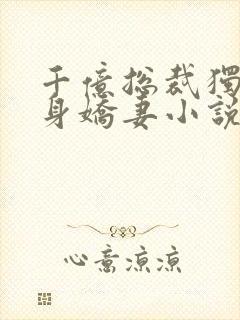 千億總裁獨
身嬌妻小說
心意涼涼